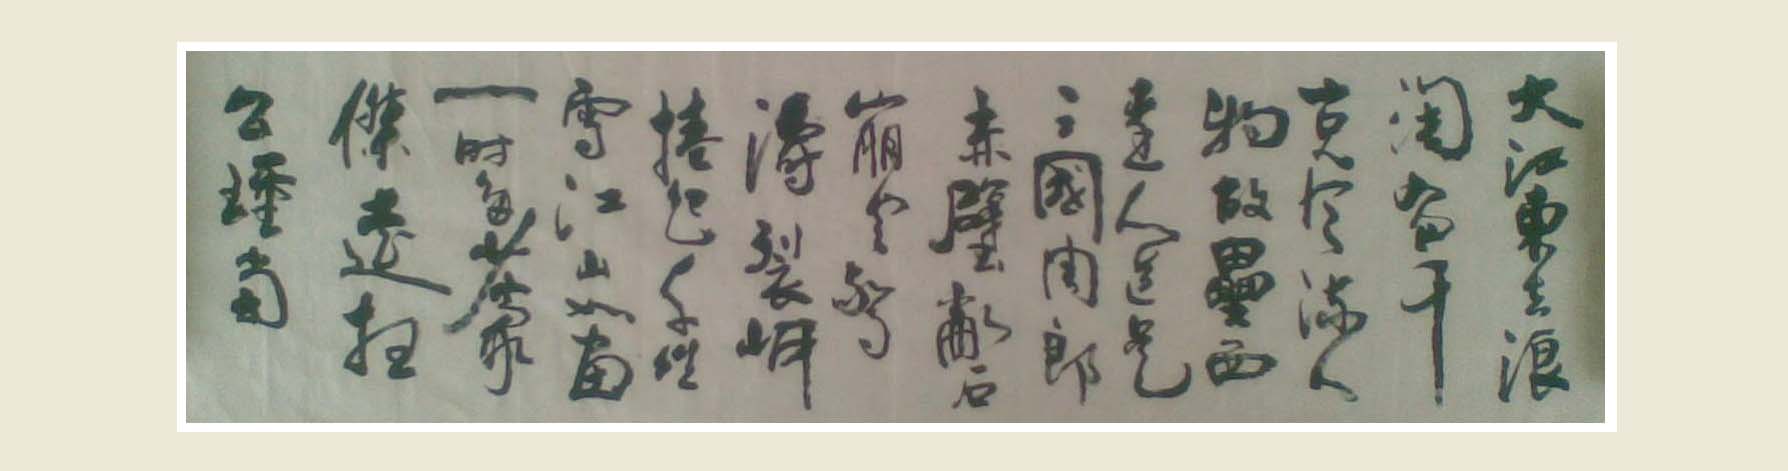 大江東去浪
淘盡千
古风流人
物故壘西
邊人道是
三國周郎
赤壁亂石
崩雲驚
濤裂岸
捲起千堆
雪江山如畫
一时多少豪
傑遥想
公瑾當